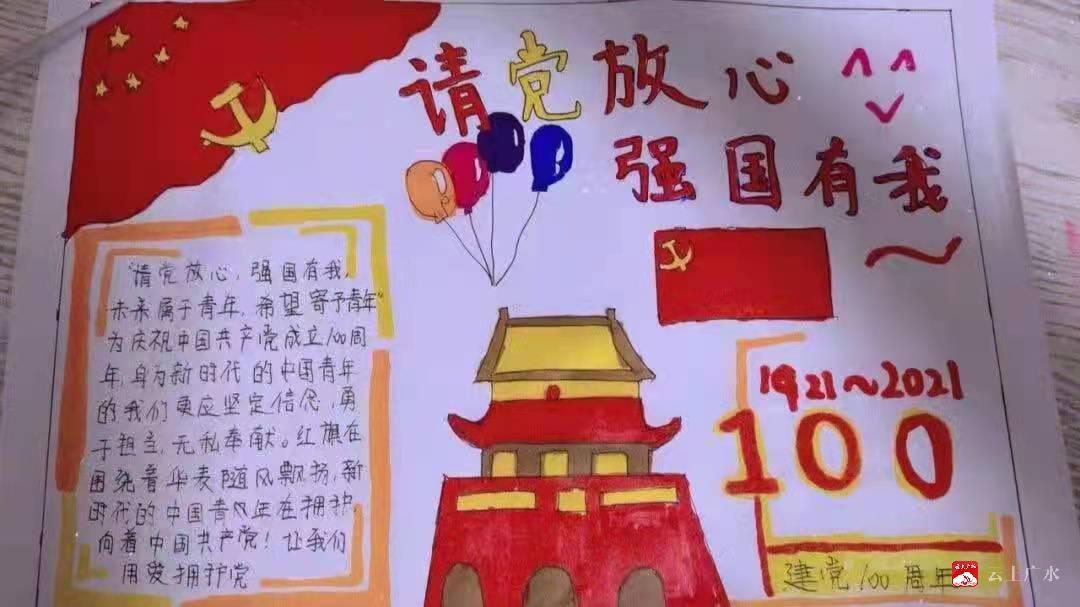 请党放心
强国有我
"请党放心，强国有我，
未来属于青年，希望寄予青年"
为庆祝中国共产党成立100周
年，身为新时代的中国青年
的我们更应坚定信念，勇
于担当，无私奉献。红旗在
围绕着华表随风飘扬，新
时代的中国青年在拥护，
向着中国共产党！让我们
用爱拥护党
1921～2021
100
建党100周年
云上广水